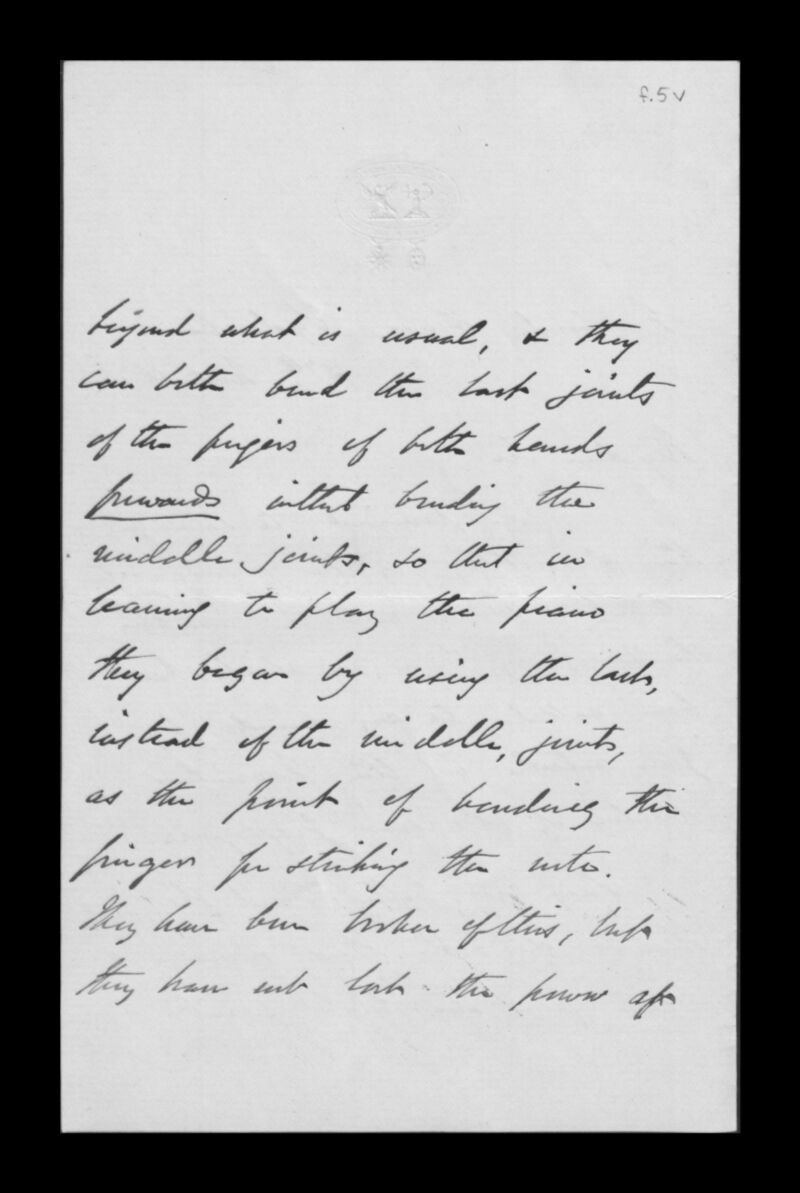 f.5v
beyond what is usual, & they
can both bend the last joints
of the fingers of both hands
forwards without bending the
middle joints, so that in
learning to play the piano
they began by using the last,
instead of the middle, joints,
as the point of bending the
fingers for striking the note.
They have been broken of this, but
they have not lost the power of